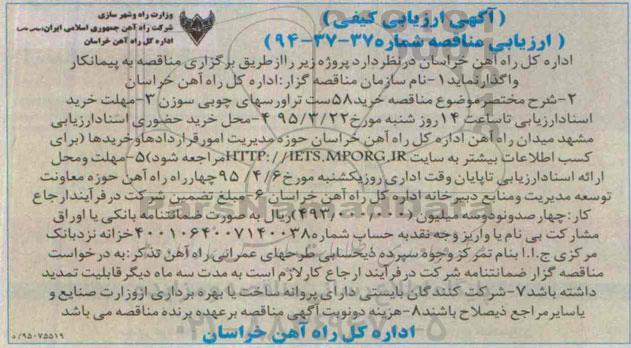 وزارت راه وشهر سازی
شرکت راه آهن جمهوری اسلامی ایران(سهامی خاص)
اداره کل راه آهن خراسان
(آگهی ارزیابی کیفی)
( ارزیابی مناقصه شماره۳۷-۳۷-۹۴)
اداره کل راه آهن خراسان درنظردارد پروژه زیر راازطریق برگزاری مناقصه به پیمانکار
واگذارنماید۱-نام سازمان مناقصه گزار:اداره کل راه آهن خراسان
۲-شرح مختصرموضوع مناقصه خرید۵۸ست تراورسهای چوبی سوزن ۳-مهلت خرید
اسنادارزیابی تاساعت ۱۴روز شنبه مورخ۹۵/۳/۲۲ ۴-محل خرید حضوری اسنادارزیابی
مشهد میدان راه آهن اداره کل راه آهن خراسان حوزه مدیریت امورقراردادهاوخریدها (برای
کسب اطلاعات بیشتر به سایت HTTP://IETS.MPORG.IRمراجعه شود)۵-مهلت ومحل
ارائه اسنادارزیابی تاپایان وقت اداری روزیکشنبه مورخ۹۵/۴/۶ چهارراه راه آهن حوزه معاونت
توسعه مدیریت ومنابع دبیرخانه اداره کل راه آهن خراسان ۶-مبلغ تضمین شرکت در فرآیندارجاع
کار:چهارصدونودوسه میلیون (۴۹۳,۰۰۰,۰۰۰)ریال به صورت ضمانتنامه بانکی یا اوراق
مشارکت بی نام یا واریز وجه نقدبه حساب شماره۴۰۰۱۰۶۴۰۰۷۱۴۰۰۳۸خزانه نزدبانک
مرکزی ج.ا.ا بنام تمرکز وجوه سپرده ذیحسابی طرحهای عمرانی راه آهن تذکر:به درخواست
مناقصه گزار ضمانتنامه شرکت در فرآیند ارجاع کارلازم است به مدت سه ماه دیگرقابلیت تمدید
داشته باشد۷-شرکت کنندگان بایستی دارای پروانه ساخت یا بهره برداری ازوزارت صنایع و
یاسایرمراجع ذیصلاح باشند۸-هزینه دونوبت آگهی مناقصه برعهده برنده مناقصه می باشد
اداره کل راه آهن خراسان
۹۵۰۷۵۵۱۹/ه